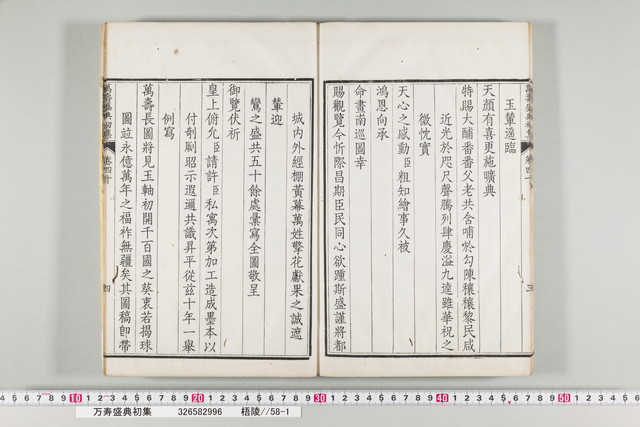 玉輦遥臨
天顔有喜更施曠典
特賜大酺番番父老共含哺於勾陳穰穰黎民咸
近光於咫尺聲騰列肆慶溢九逵雖華祝之
微忱實
天心之感動臣粗知繪事久被
鴻恩向承
命畫南巡圖幸
賜觀覽今忻際昌期臣民同心欲踵斯盛謹將都
城內外經棚黃幕萬姓擎花獻果之誠適
輦迎
鸞之盛共五十餘處彙寫全圖敬呈
御覽伏祈
皇上俯允臣請許臣私寓次第加工造成墨本以
付剞劂昭示遐邇共識昇平從茲十年一舉
例寫
萬壽長圖將見玉軸初開千百國之葵衷若揭球
圖竝永億萬年之福祚無疆矣其圖稿卽帶
萬壽盛典初集
卷四十
三
萬壽盛典初集
卷四十
四
万寿盛典初集 326582996 梧陵//58-1
1 2 3 4 5 6 7 8 9 10 1 2 3 4 5 6 7 8 9 20 1 2 3 4 5 6 7 8 9 30 1 2 3 4 5 6 7 8 9 40 1 2 3 4 5 6 7 8 9 50